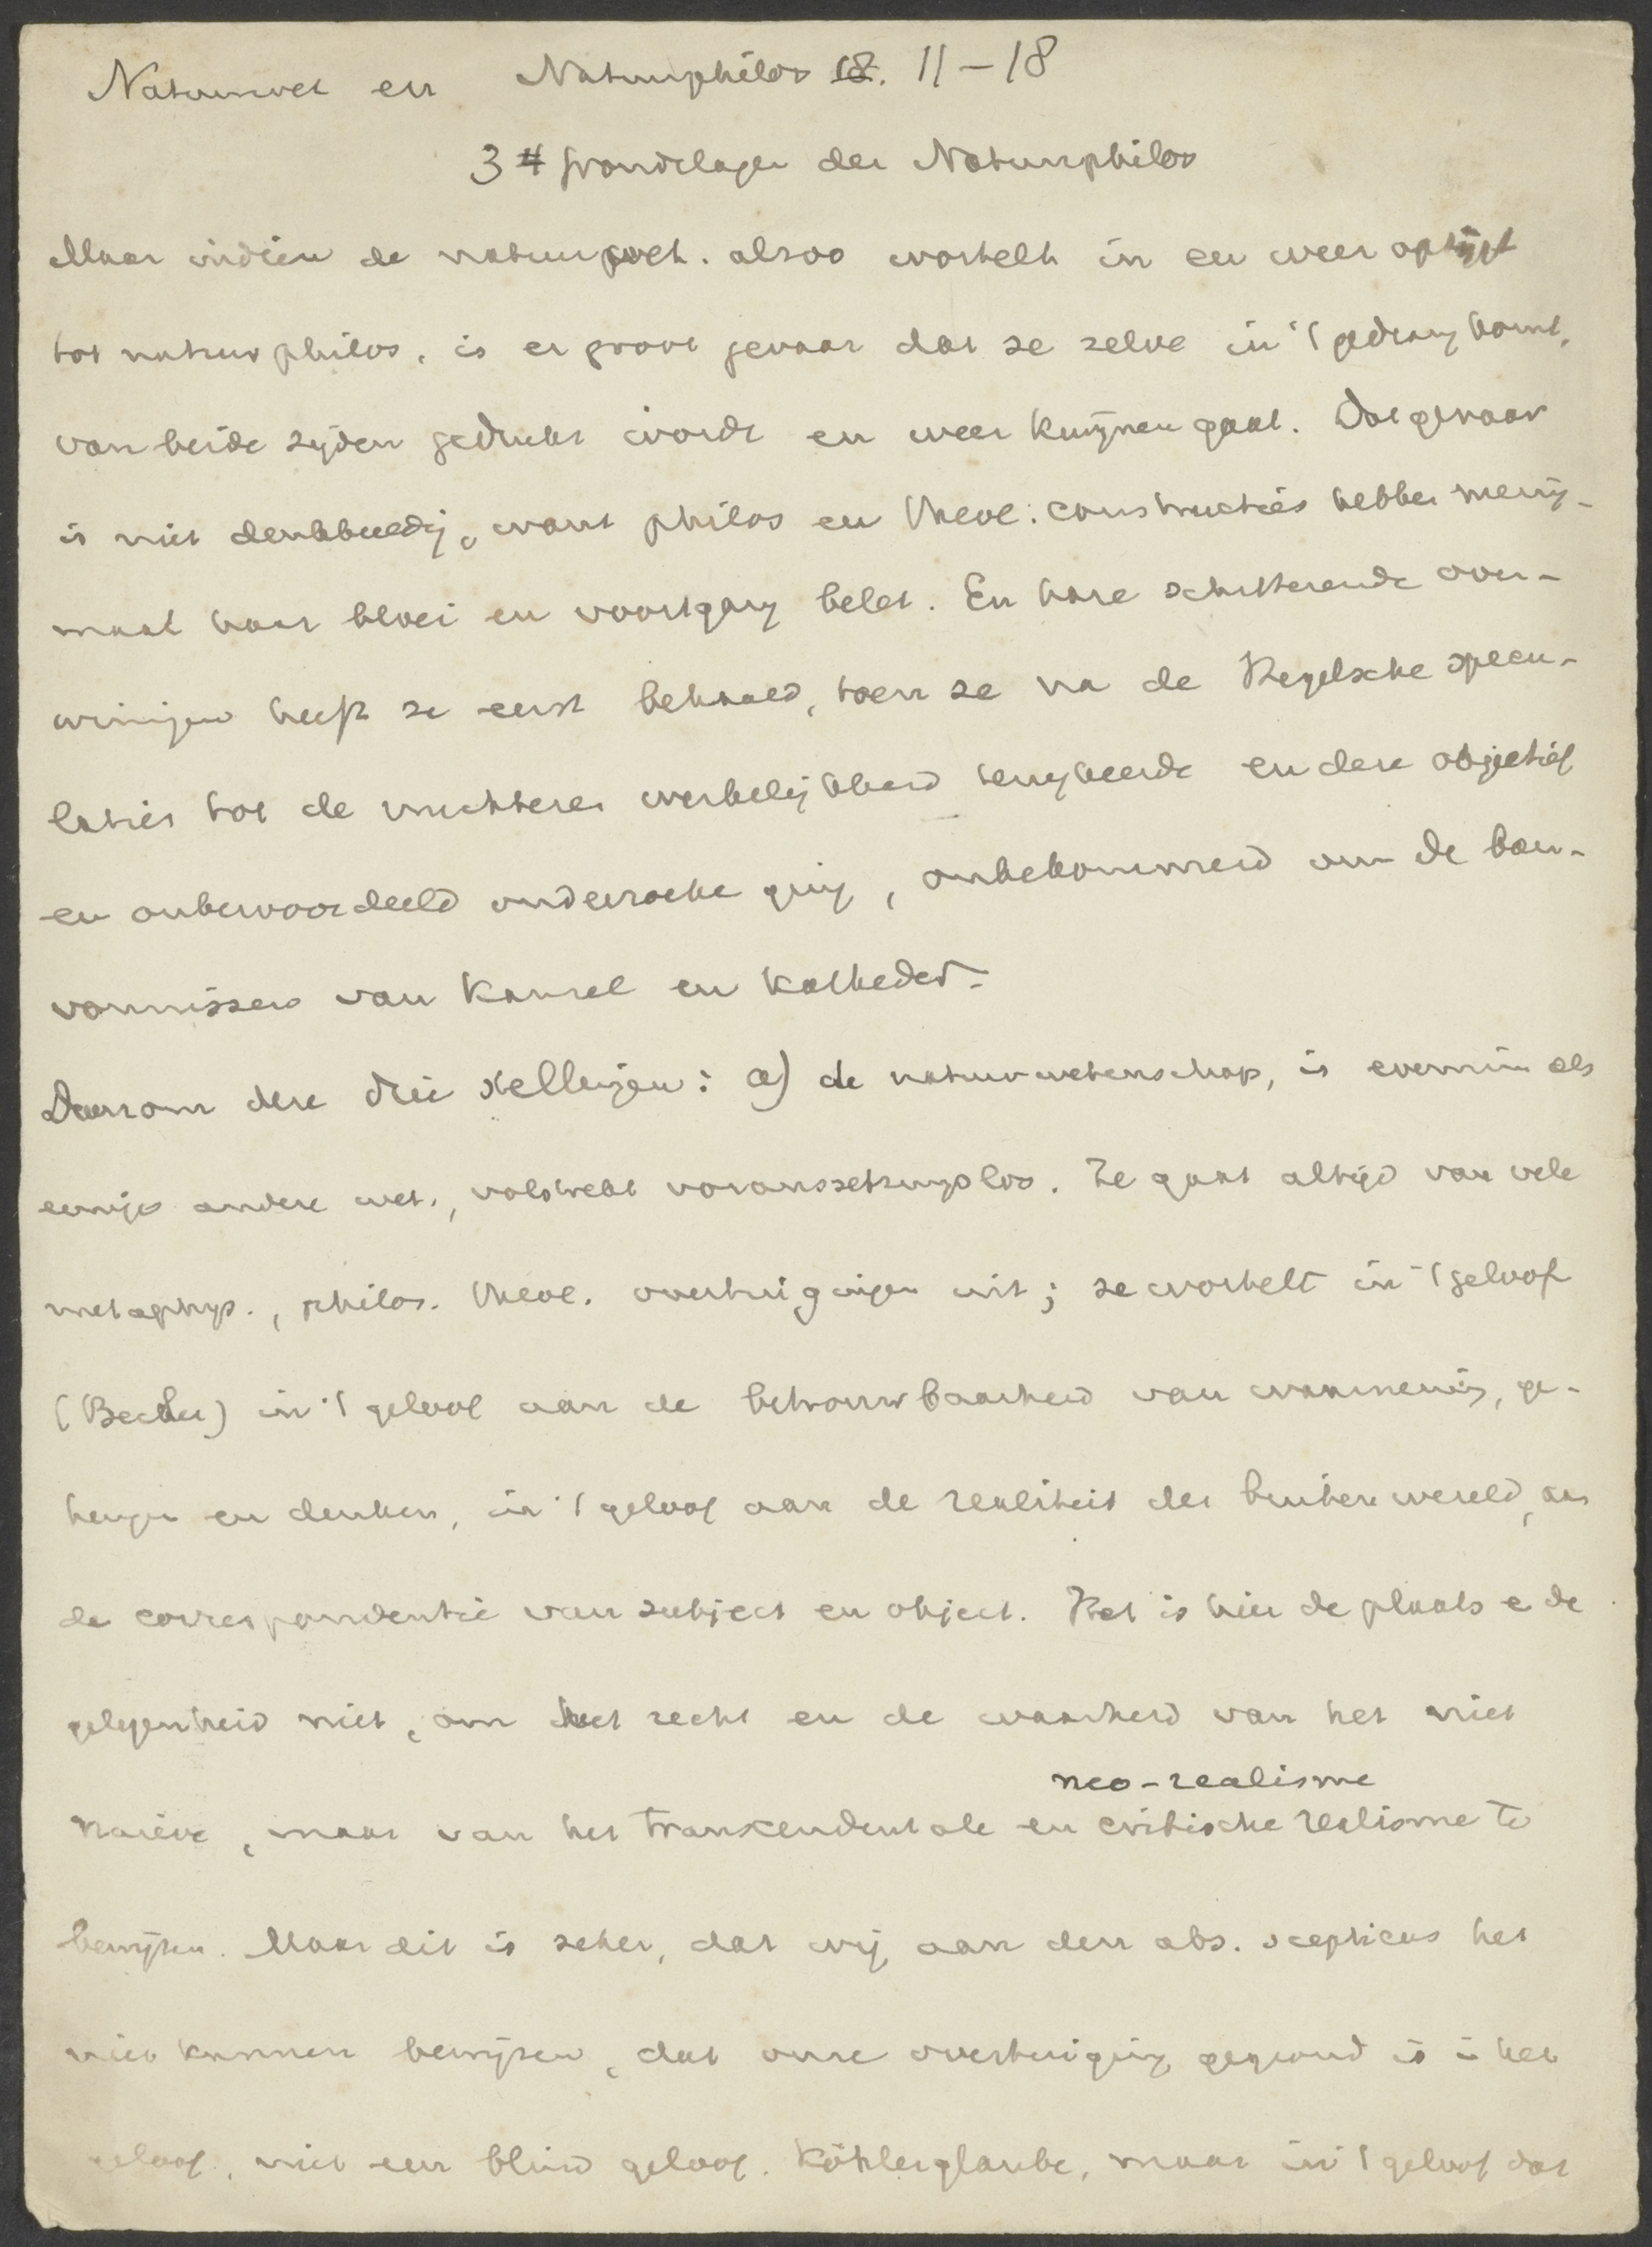 Natuurwet en Natuurphilos 18. 11-18
3 # Grondslagen der Natuurphilos
Maar indien de natuurwet. alzoo wortelt in en weer opstijgt
tot natuurphilos, is er groot gevaar dat ze zelve in 't gedrang komt,
van beide zijden gedrukt wordt en weer kwijnen gaat. Dat gevaar
is niet denkbeeldig, want philos en theol. constructies hebben menig-
maal haar bloei en voortgang belet. En hare schitterende over-
winningen heeft ze eerst behaald, toen ze na de Hegelsche specu-
laties tot de nuchtere werkelijkheid terugkeerde en deze objectief
en onbevooroordeeld onderzoeken ging, onbekommerd om de ban-
vonnissen van kansel en katheder.
Daarom deze drie stellingen: a) de natuurwetenschap, is evenmin als
eenige andere wet., volstrekt voraussetzungslos. Ze gaat altijd van vele
metaphys., philos. theol. overtuigingen uit; ze wortelt in 't geloof
(Becher) in 't geloof aan de betrouwbaarheid van waarneming, ge-
heugen en denken, in 't geloof aan de realiteit der buitenwereld, aan
de correspondentie van subject en object. Het is hier de plaats e de
gelegenheid niet, om het recht en de waarheid van het niet
neo-realisme
naieve, maar van het transcendentale en critische realisme te
bewijzen. Maar dit is zeker, dat wij aan den abs. scepticus het
niet kunnen bewijzen, dat onze overtuiging gegrond is in het
geloof, niet een blind geloof. Köhlerglaube, maar in 't geloof dat